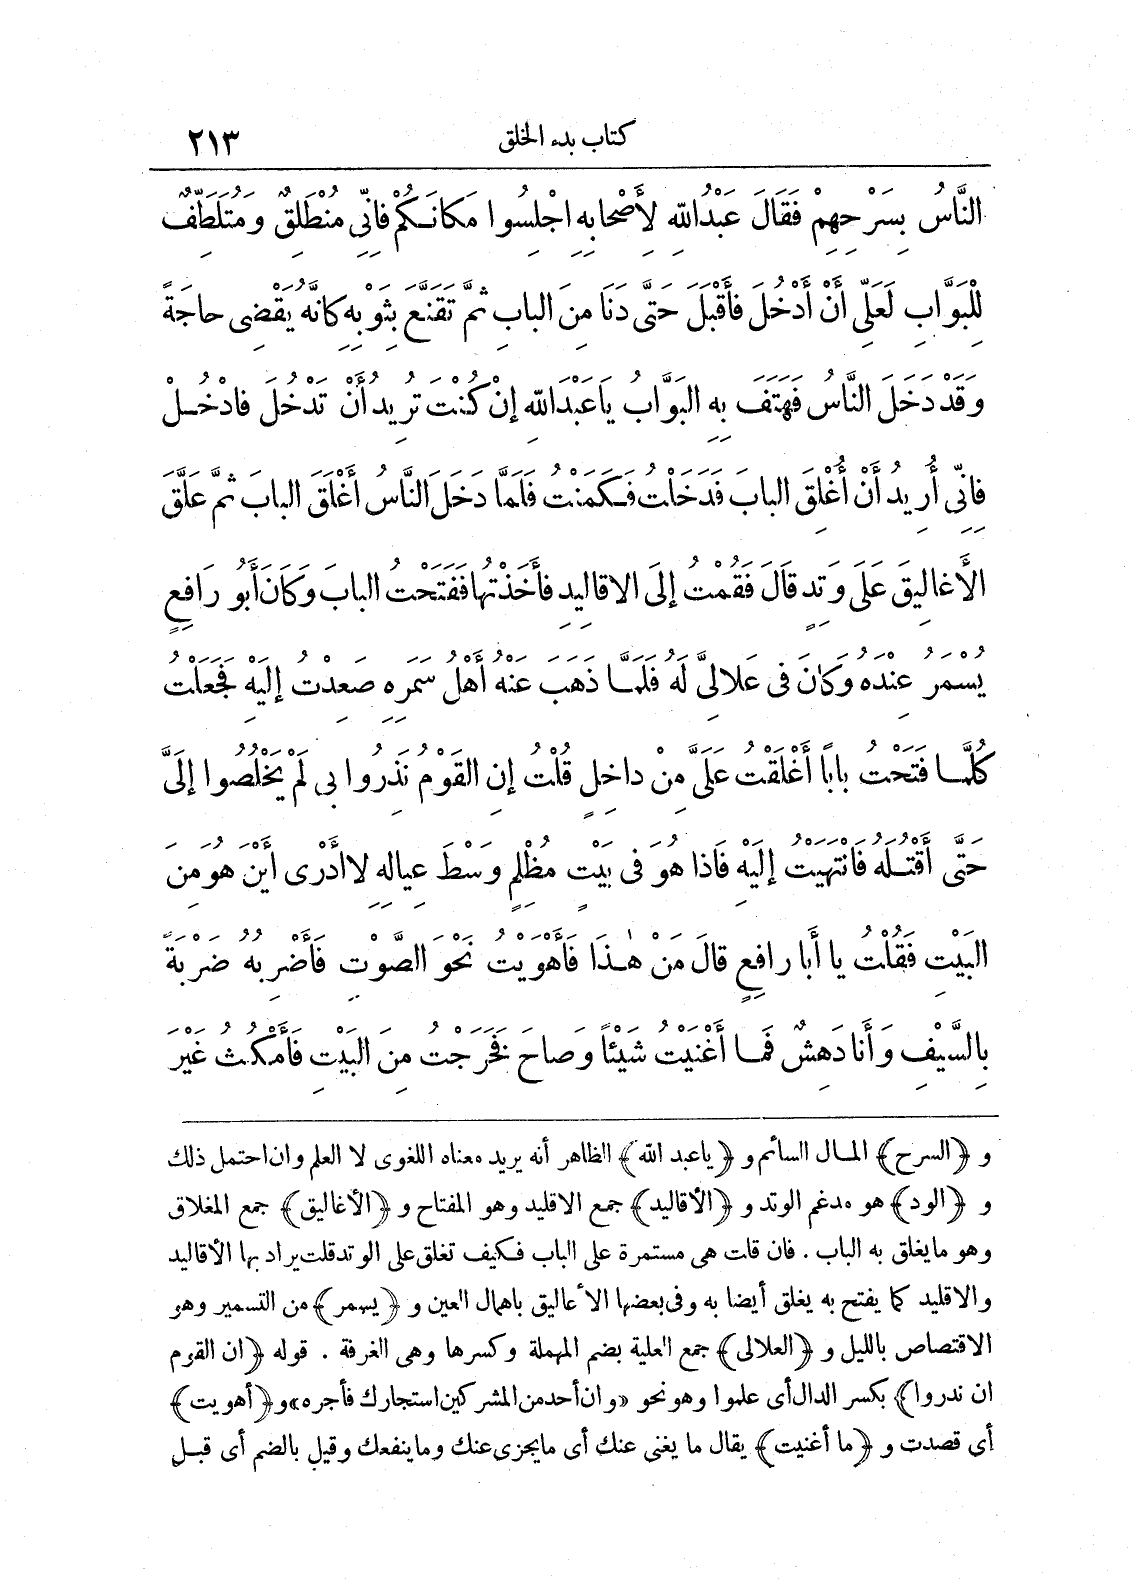 كتاب بدء الخلق
٢١٣
النَّاسُ بِسَرْحِهِمْ فَقَالَ عَبْدُ اللهِ لِأَصْحابِهِ اجْلِسُوا مَكانَكُمْ فَانِّى مُنْطَلِقٌ وَمُتَلَطِّفٌ
لِلْبَوَّابِ لَعَلِّى أَنْ أَدْخُلَ فَأَقْبَلَ حَتَّى دَنَا مِنَ البابِ ثُمَّ تَقَنَّعَ بِثَوْبِهِ كَانَّهُ يَقْضِى حاجَةً
وَقَدْ دَخَلَ النَّاسُ فَهَتَفَ بِهِ البَوَّابُ يا عَبْدَ اللهِ إِنْ كُنْتَ تُرِيدُ أَنْ تَدْخُلَ فادْخُلْ
فَانِّى أُرِيدُ أَنْ أُغْلِقَ البابَ فَدَخَلْتُ فَكَمَنْتُ فَلَمَّا دَخَلَ النَّاسُ أَغْلَقَ البابَ ثُمَّ عَلَّقَ
الأَغالِيقَ عَلَى وَتِدٍ قالَ فَقُمْتُ إِلَى الاقالِيدِ فَأَخَذْتُها فَفَتَحْتُ البابَ وَكَانَ أَبُو رَافِعٍ
يُسْمَرُ عِنْدَهُ وَكانَ فى عَلالِىَّ لَهُ فَلَمَّا ذَهَبَ عَنْهُ أَهْلُ سَمَرِهِ صَعِدْتُ إِلَيْهِ فَجَعَلْتُ
كُلَّما فَتَحْتُ باباً أَغْلَقْتُ عَلَىَّ مِنْ داخِلٍ قُلْتُ إِنِ القَوْمُ نَذِرُوا بى لَمْ يَخْلُصُوا إِلَىَّ
حَتَّى أَقْتُلَهُ فَانْتَهَيْتُ إِلَيْهِ فَاذا هُوَ فى بَيْتٍ مُظْلِمٍ وَسْطَ عِيالِهِ لا أَدْرى أَيْنَ هُوَ مِنَ
البَيْتِ فَقُلْتُ يا أَبا رافِعٍ قالَ مَنْ هٰذَا فَأَهْوَيْتُ نَحْوَ الصَّوْتِ فَأَضْرِبُهُ ضَرْبَةً
بِالسَّيْفِ وَأَنا دَهِشٌ فَما أَغْنَيْتُ شَيْئاً وَصاحَ فَخَرَجْتُ مِنَ البَيْتِ فَأَمْكُثُ غَيْرَ
و ﴿السرح﴾ المال السائم و ﴿ياعبد الله﴾ الظاهر أنه يريد معناه اللغوى لا العلم وان احتمل ذلك
و ﴿الود﴾ هو مدغم الوتد و ﴿الأقاليد﴾ جمع الاقليد وهو المفتاح و ﴿الأغاليق﴾ جمع المغلاق
وهو مايغلق به الباب . فان قلت هى مستمرة على الباب فكيف تغلق على الوتد قلت يراد بها الأقاليد
والاقليد كما يفتح به يغلق أيضا به وفى بعضها الأعاليق باهمال العين و ﴿يسمر﴾ من التسمير وهو
الاقتصاص بالليل و ﴿العلالى﴾ جمع العلية بضم المهملة وكسرها وهى الغرفة . قوله ﴿ان القوم
ان ندروا﴾ بكسر الدال أى علموا وهو نحو «وان أحد من المشركين استجارك فأجره» و ﴿أهويت﴾
أى قصدت و ﴿ما أغنيت﴾ يقال ما يغنى عنك أى مايجزى عنك وماينفعك وقيل بالضم أى قبل